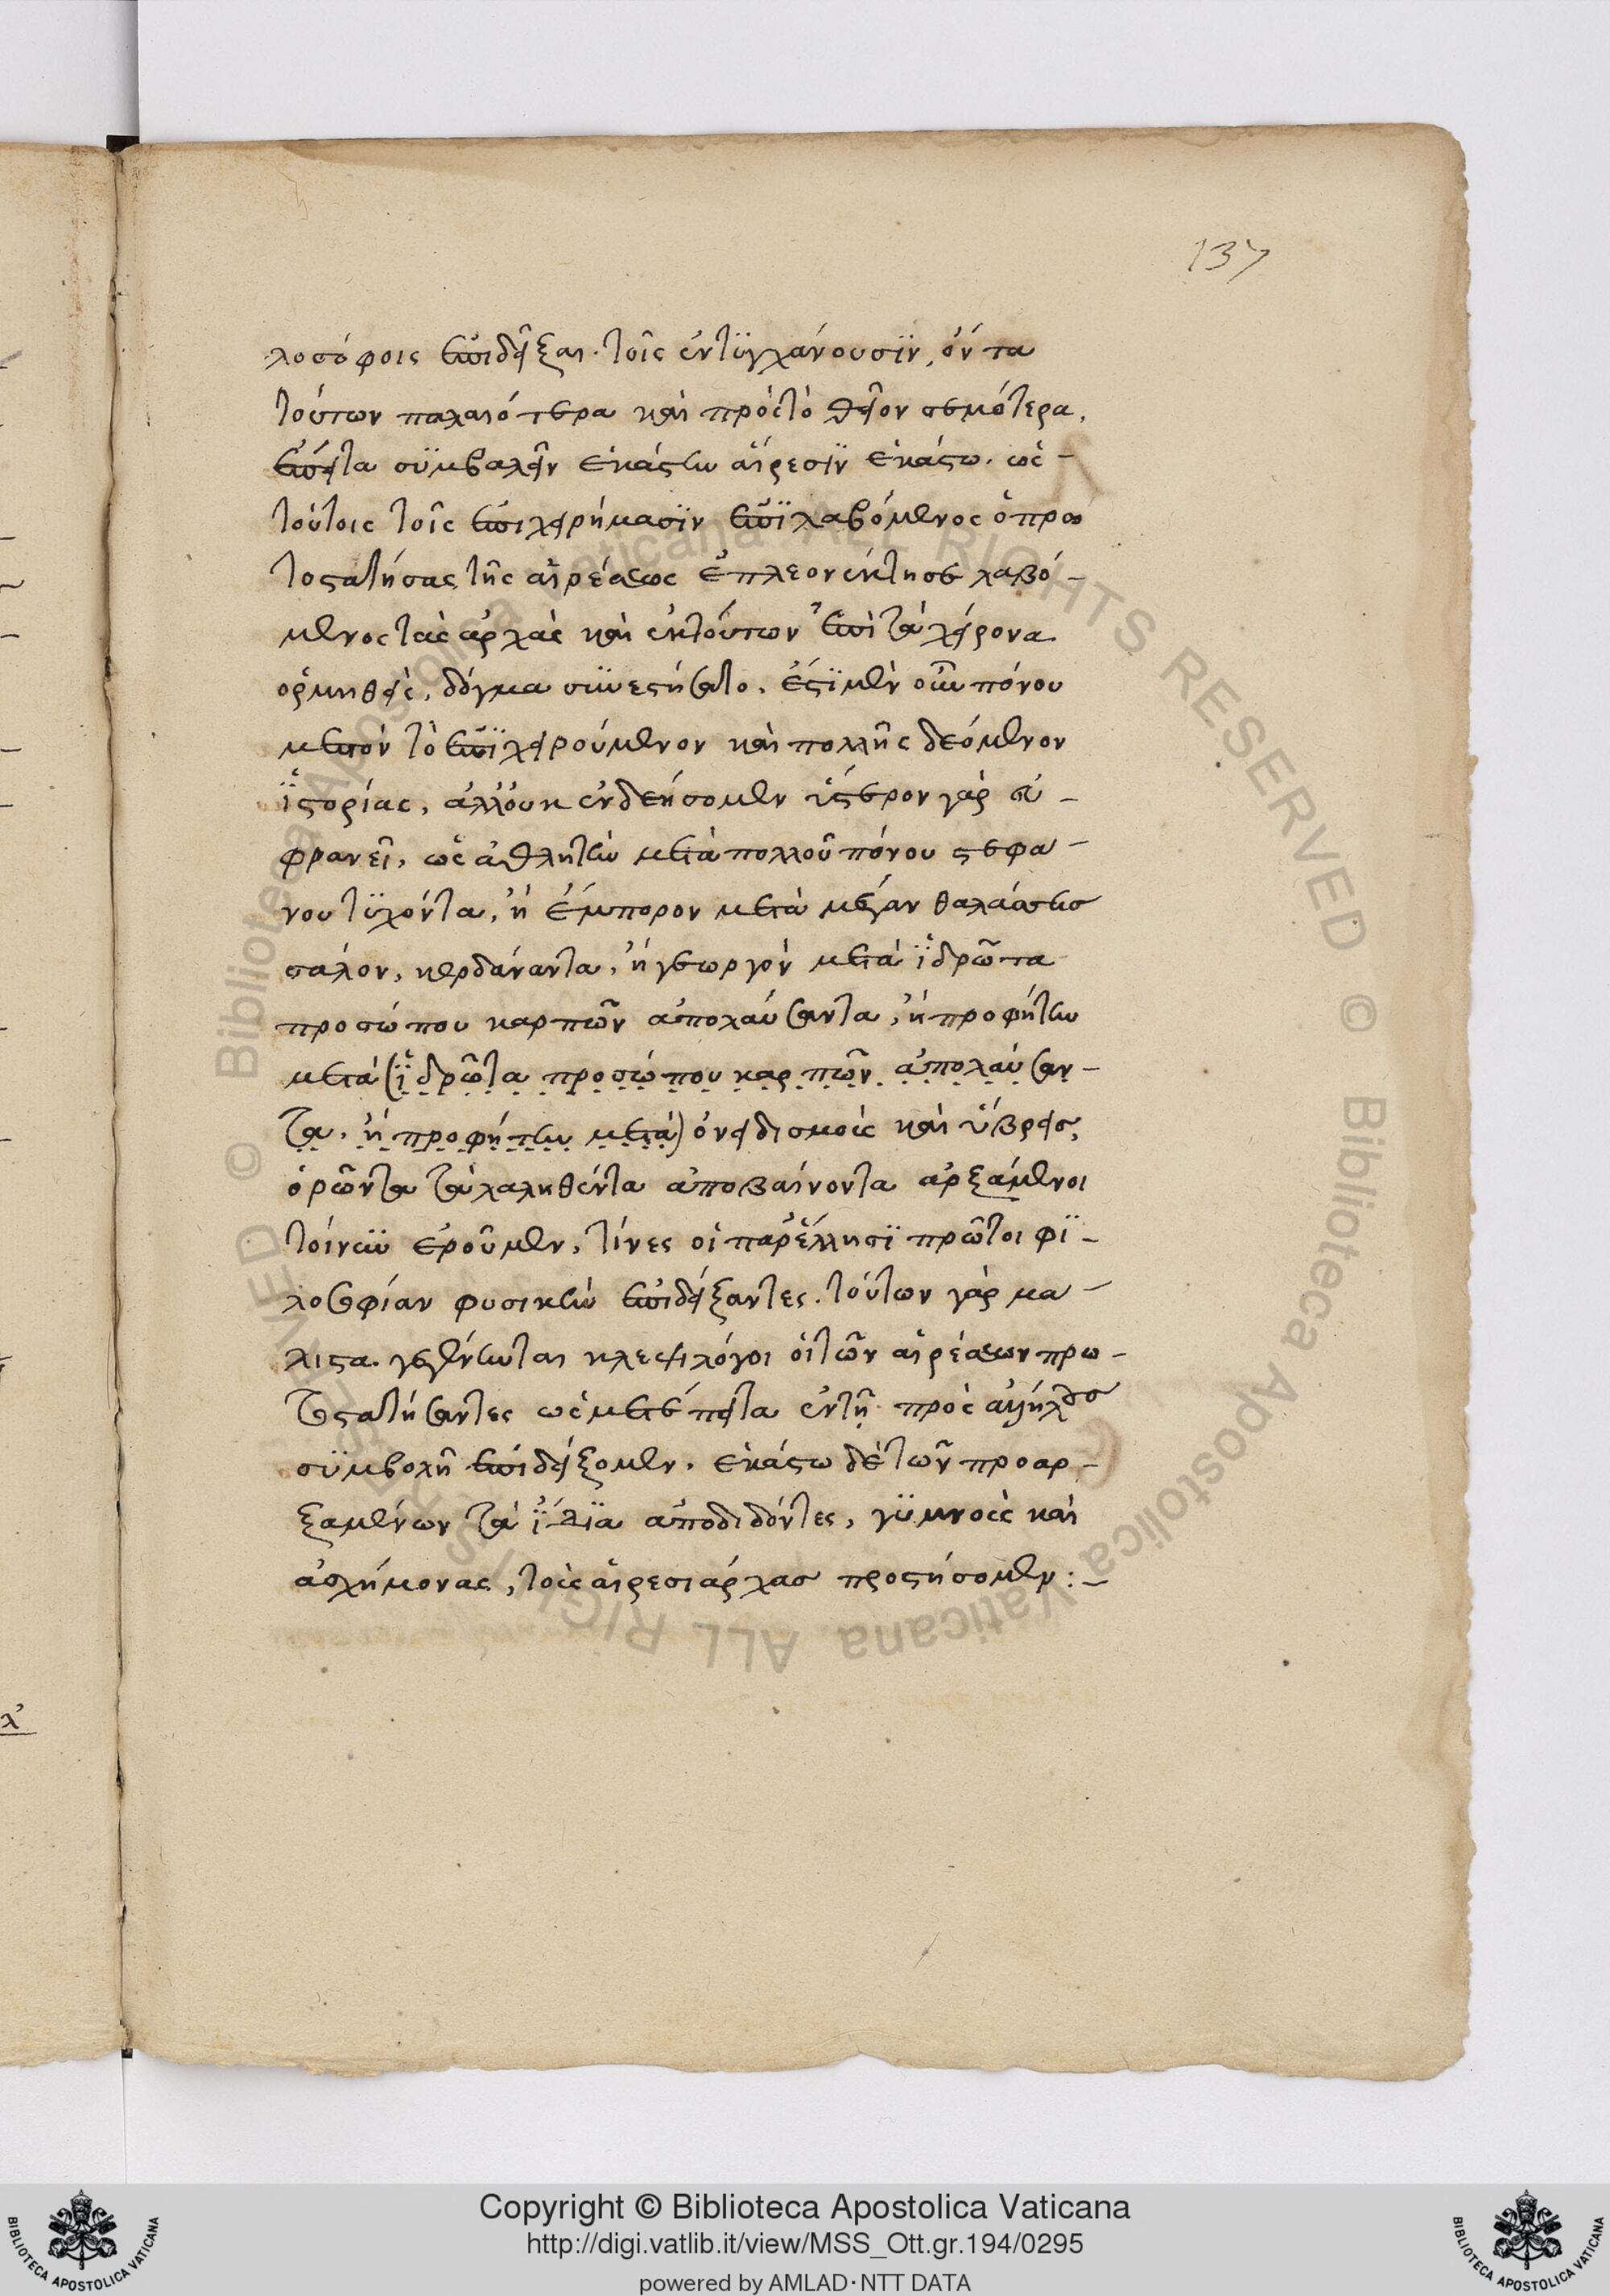 137
λοσόφοις ἐπιδεῖξαι· τοῖς ἐντϋγχάνουσϊν, ὄντα
τούτων παλαιότερα καὶ πρὸς τὸ θεῖον σεμότερα,
ἔπειτα σϋμβαλεῖν ἑκάστην αἵρεσϊν ἑκάστω. ὡς –
τούτοις τοῖς ἐπιχειρήμασϊν ἐπϊλαβόμενος ὁ πρω
τοστατήσας τῆς αἱρέσεως ἐπλεονέκτησε λαβό –
μενος τὰς ἀρχὰς καὶ ἐκ τούτων ἐπὶ τὰ χείρονα
ὁρμηθεὶς, δόγμα συνεστήσατο. ἔστϊ μὲν οὖν πόνου
μεστὸν τὸ ἐπϊχειρούμενον καὶ πολλῆς δεόμενον
ἱστορίας, ἀλλ' οὐκ ἐνδεήσομεν ὕστερον γὰρ εὐ –
φρανεῖ, ὡς ἀθλητὴν μετὰ πολλοῦ πόνου στεφά –
νου τϋχόντα, ἢ ἔμπορον μετὰ μέγαν θαλάσσης
σάλον, κερδάναντα, ἢ γεωργὸν μετὰ ἱδρῶτα
προσώπου καρπῶν ἀπολαύσαντα, ἢ προφήτην
μετὰ (ἱδρῶτα προσώπου καρπῶν ἀπολαύσαν –
τα, ἢ προφήτην μετὰ) ὀνειδισμοὺς καὶ ὕβρεις,
ὁρῶντα τὰ λαληθέντα ἀποβαίνοντα ἀρξάμενοι
τοίνυν ἐροῦμεν, τίνες οἱ παρ' ἕλλησϊ πρῶτοι φϊ –
λοσοφίαν φυσικὴν ἐπιδείξαντες. τούτων γὰρ μά –
λιστα γεγένηνται κλεψιλόγοι οἱ τῶν αἱρέσεων πρω –
τοστατήσαντες ὡς μετέπειτα ἐν τῇ πρὸς ἀλλήλους
σϋμβολῆ ἐπιδείξομεν. ἑκάστω δὲ τῶν προαρ –
ξαμένων τὰ ἴδϊα ἀποδιδόντες, γϋμνοὺς καὶ
ἀσχήμονας, τοὺς αἱρεσιάρχας προστήσομεν :–
λ'
© Biblioteca Apostolica Vaticana ALL RIGHTS RESERVED © Biblioteca Apostolica Vaticana ALL RIGHTS RESERVED
Copyright © Biblioteca Apostolica Vaticana
http://digi.vatlib.it/view/MSS_Ott.gr.194/0295
powered by AMLAD·NTT DATA
BIBLIOTECA APOSTOLICA VATICANA
BIBLIOTECA APOSTOLICA VATICANA